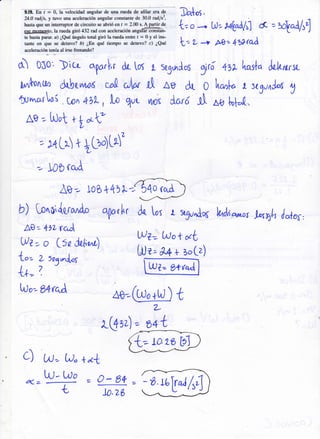 9.19. En t = 0, la velocidad angular de una rueda de afilar era de
24.0 rad/s, y tuvo una aceleración angular constante de 30.0 rad/s²,
hasta que un interruptor de circuito se abrió en t = 2.00 s. A partir de
ese momento, la rueda giró 432 rad con aceleración angular constan-
te hasta parar. a) ¿Qué ángulo total giró la rueda entre t = 0 y el ins-
tante en que se detuvo? b) ¿En qué tiempo se detuvo? c) ¿Qué
aceleración tenía al irse frenando?
Datos.
t=0 → W= 24[rad/s] α = 30[rad/s²]
t=2 → Δθ= 432rad
a) OJO: Dice apartir de los 2 segundos giró 432 hasta detenerse
entonces debemos calcular el Δθ de 0 hasta 2 segundos y
sumarlos con 432, lo que nos dará el Δθ total.
Δθ = Wot + ½ αt²
= 24(2) + ½(30)(2)²
= 108 rad
Δθ = 108 + 432 = 540 rad
b) Considerando apartir de los 2 segundos tendríamos los sgts datos:
Δθ = 432 rad
W2 = 0 (Se detiene)
to= 2 segundos
tf= ?
Wo= 84rad
W2= Wo + αt
W2= 24 + 30(2)
W2= 84rad
Δθ=(Wo+W) t
2
2(432) = 84 t
t= 10.28 [s]
c) W= Wo + αt
α = W-Wo = 0-84 = -8.16[rad/s²]
t 10.28